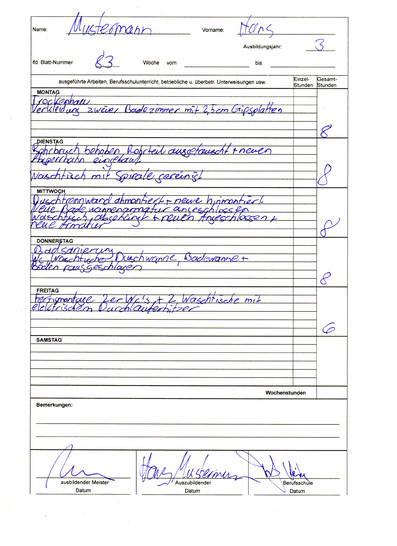 Name: Mustermann Vorname: Hans
Ausbildungsjahr: 3
lfd. Blatt-Nummer 83 Woche vom bis
ausgeführte Arbeiten, Berufsschulunterricht, betriebliche u. überbetr. Unterweisungen usw. Einzel-Stunden Gesamt-Stunden
MONTAG
Trockenbau
Verkleidung zweier Badezimmer mit 2,5cm Gipsplatten
8
DIENSTAG
Rohrbruch behoben, Rohrteil ausgetauscht + neuen
eingebaut
Waschtisch mit Spirale gereinigt
8
MITTWOCH
Duschtrennwand abmontiert + neue hinmontiert
Neue Badewannenarmatur angeschlossen
Waschtisch abgehängt + neuen Angeschlossen +
neue Armatur
8
DONNERSTAG
Badsanierung
Wc, Waschtisch, Duschwanne, Badewanne +
Boden rausgeschlagen
8
FREITAG
Fertigmontage 2er Wc's + 2 Waschtische mit
elektrischem Durchlauferhitzer
6
SAMSTAG
Wochenstunden
Bemerkungen:
Hans Mustermann
ausbildender Meister Auszubildender Berufsschule
Datum Datum Datum